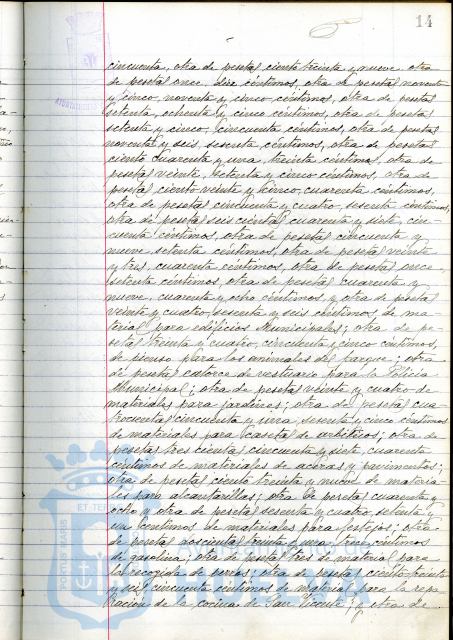 14
cincuenta, otra de pesetas ciento treinta y nueve, otra
de pesetas once, diez céntimos, otra de pesetas noventa
y cinco, noventa y cinco céntimos, otra de pesetas
setenta, ochenta y cinco céntimos, otra de pesetas
setenta y cinco, cincuenta céntimos, otra de pesetas
noventa y seis, sesenta céntimos, otra de pesetas
ciento cuarenta y una, treinta céntimos, otra de
pesetas veinte, setenta y cinco céntimos, otra de
pesetas ciento veinte y cinco, cuarenta céntimos,
otra de pesetas cincuenta y cuatro, sesenta céntimos,
otra de pesetas seiscientas cuarenta y siete, cin-
cuenta céntimos, otra de pesetas cincuenta y
nueve, setenta céntimos, otra de pesetas veinte
y tres, cuarenta céntimos, otra de pesetas once,
setenta céntimos, otra de pesetas cuarenta y
nueve, cuarenta y ocho céntimos, y otra de pesetas
veinte y cuatro, sesenta y seis céntimos de ma-
terial para edificios Municipales; otra de pe-
setas treinta y cuatro, cincuenta y cinco céntimos,
de pienso para los animales del parque; otra
de pesetas catorce de vestuario para la Policia
Municipal; otra de pesetas veinte y cuatro de
materiales para jardines; otra de pesetas cua-
trocientas cincuenta y una, sesenta y cinco céntimos
de materiales para casetas de arbitrios; otra de
pesetas trescientas cincuenta y siete, cuarenta
céntimos de materiales de aceras y pavimentos;
otra de pesetas ciento treinta y nueve de materia-
les para alcantarillas; otra de pesetas cuarenta y
ocho y otra de pesetas sesenta y cuatro, setenta y
un céntimos de materiales para festejos; otra
de pesetas doscientas treinta y una, trece céntimos
de gasolina; otra de pesetas tres de material para
la recogida de perros; otra de pesetas ciento treinta
y seis, cincuenta céntimos de material para la repa-
ración de la cocina de San Vicente; y otra de
PORTUS MARIS